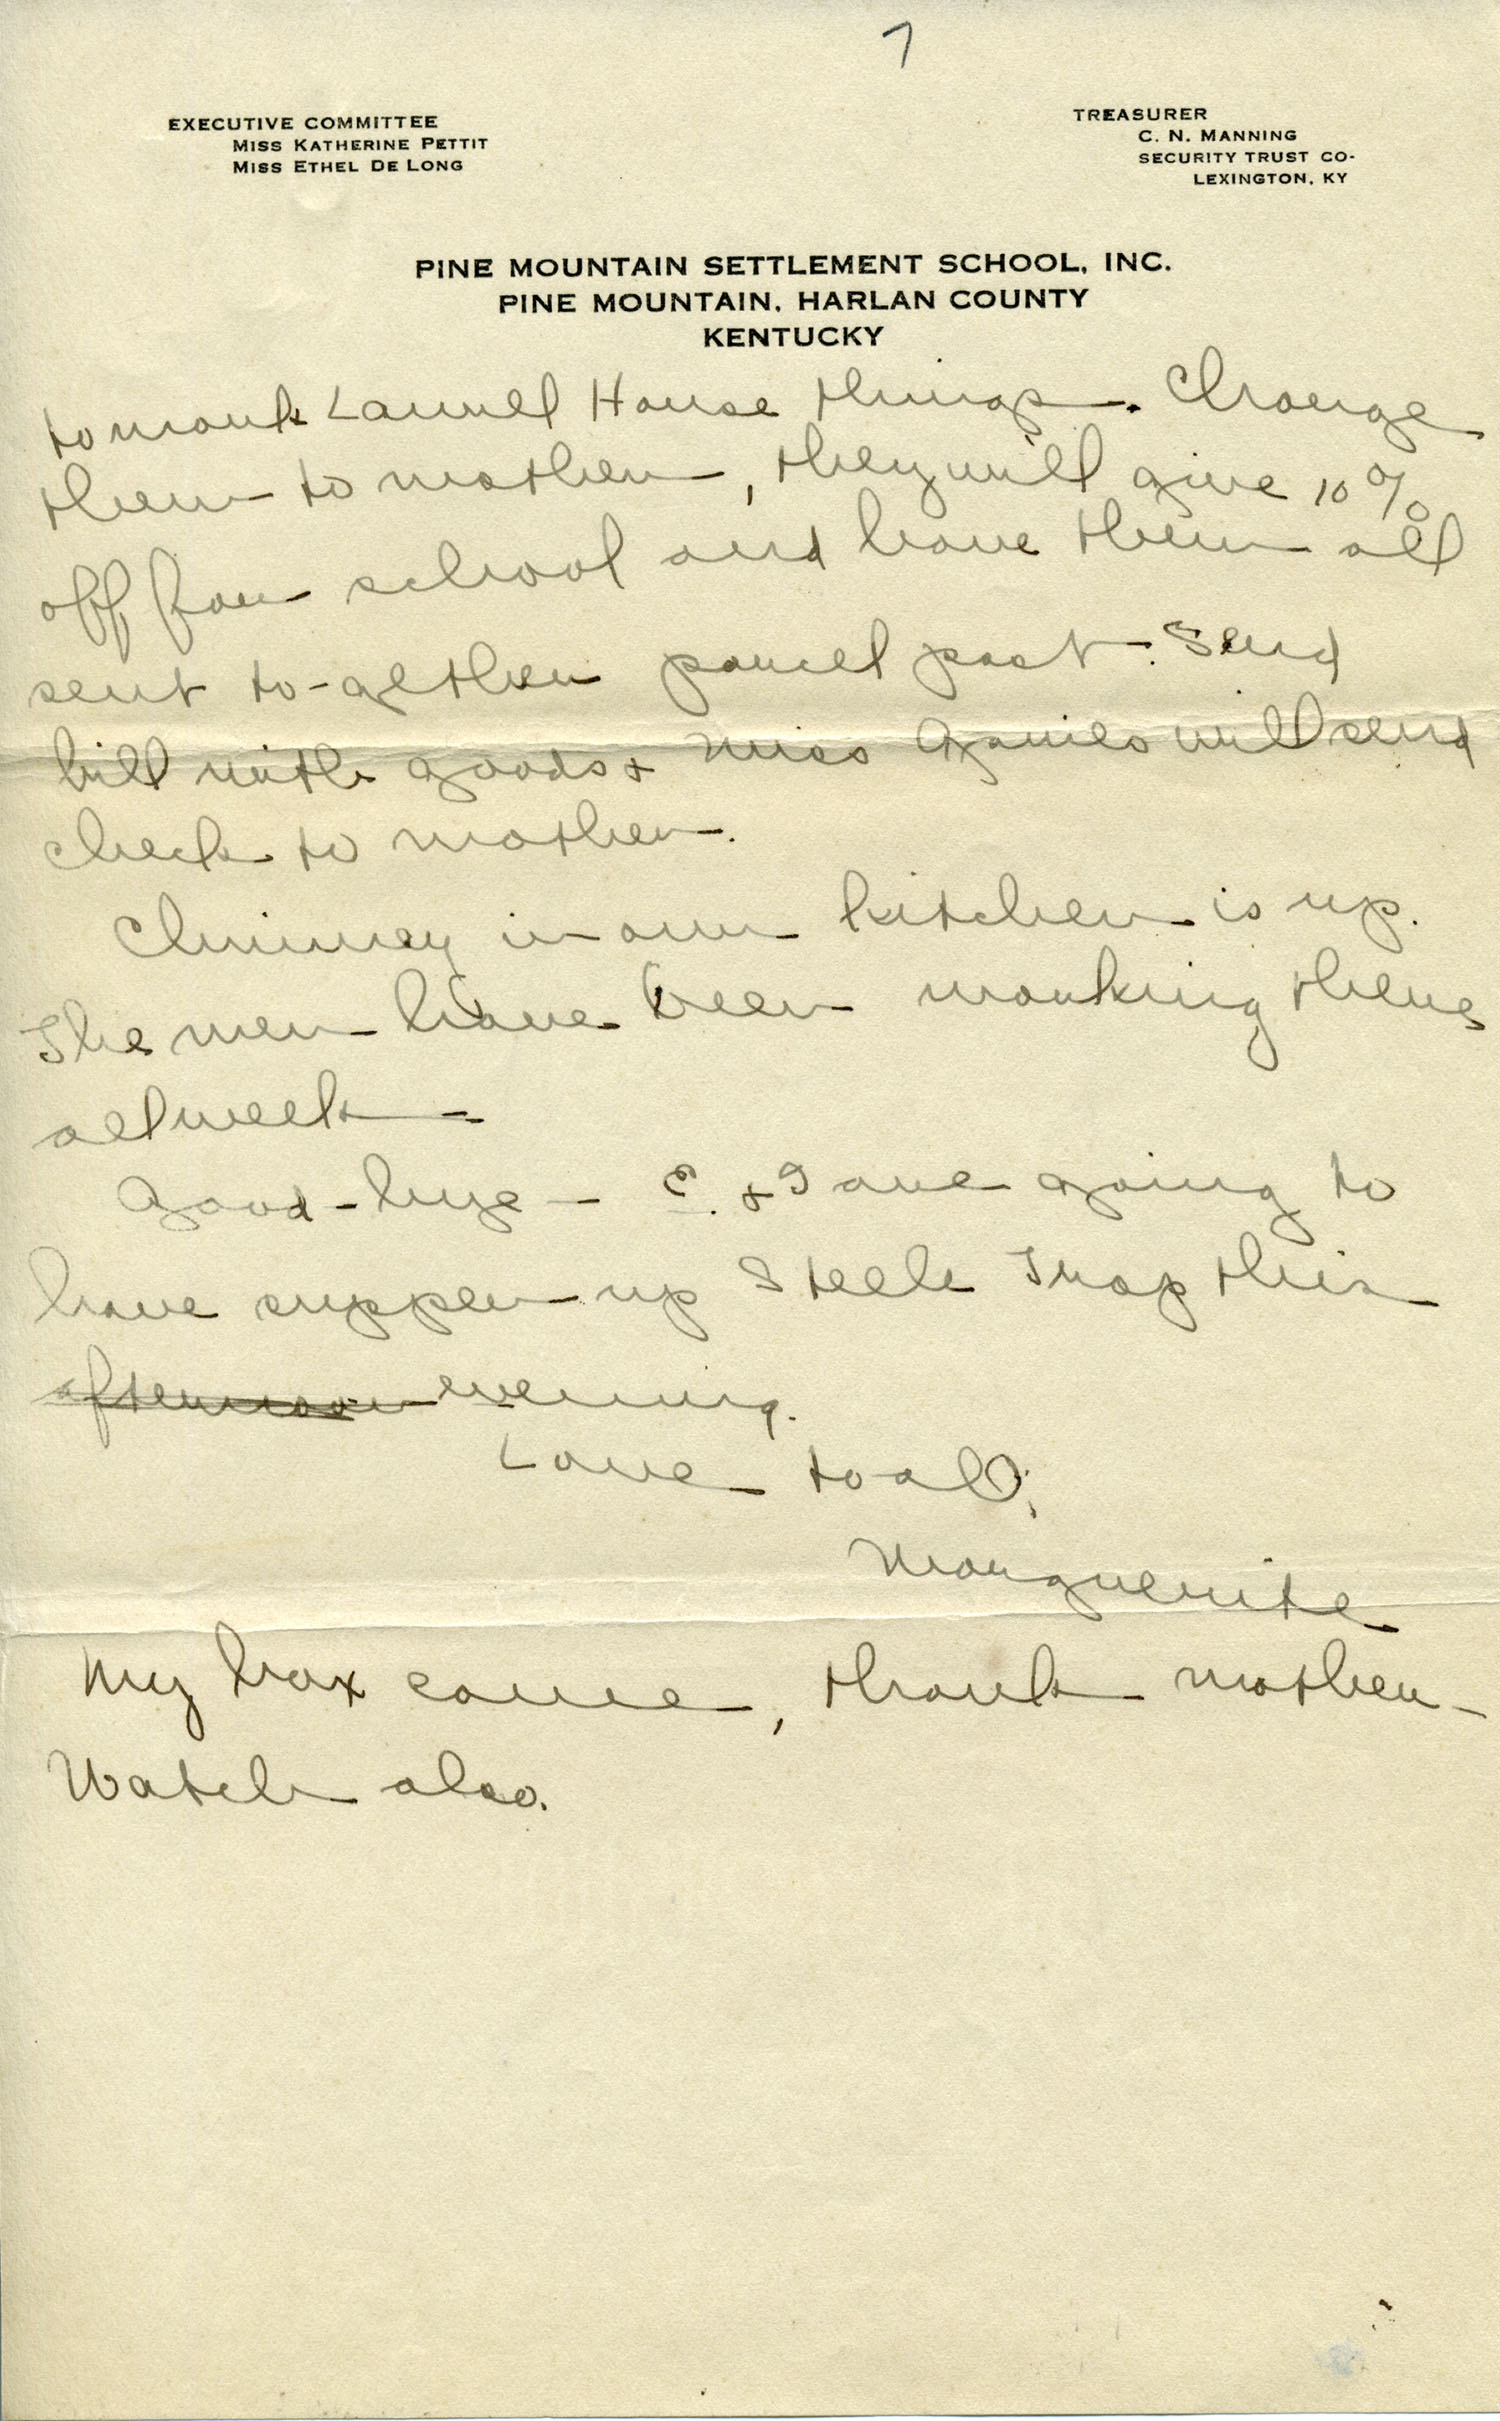 7
EXECUTIVE COMMITTEE
MISS KATHERINE PETTIT
MISS ETHEL DE LONG
TREASURER
C. N. MANNING
SECURITY TRUST CO-
LEXINGTON, KY
PINE MOUNTAIN SETTLEMENT SCHOOL, INC.
PINE MOUNTAIN, HARLAN COUNTY
KENTUCKY
to mark Laurel House things. Charge
them to mother, they will give 10%
off for school and have them all
sent to-gether parcel post. Send
bill with goods & Miss Gaines will send
check to mother.
Chimney in our kitchen is up.
The men have been working there
all week –
Good-bye – E. & I are going to
have supper up Steele Trap this
afternoon evening.
Love to all,
Marguerite
My box came, thank mother –
Watch also.